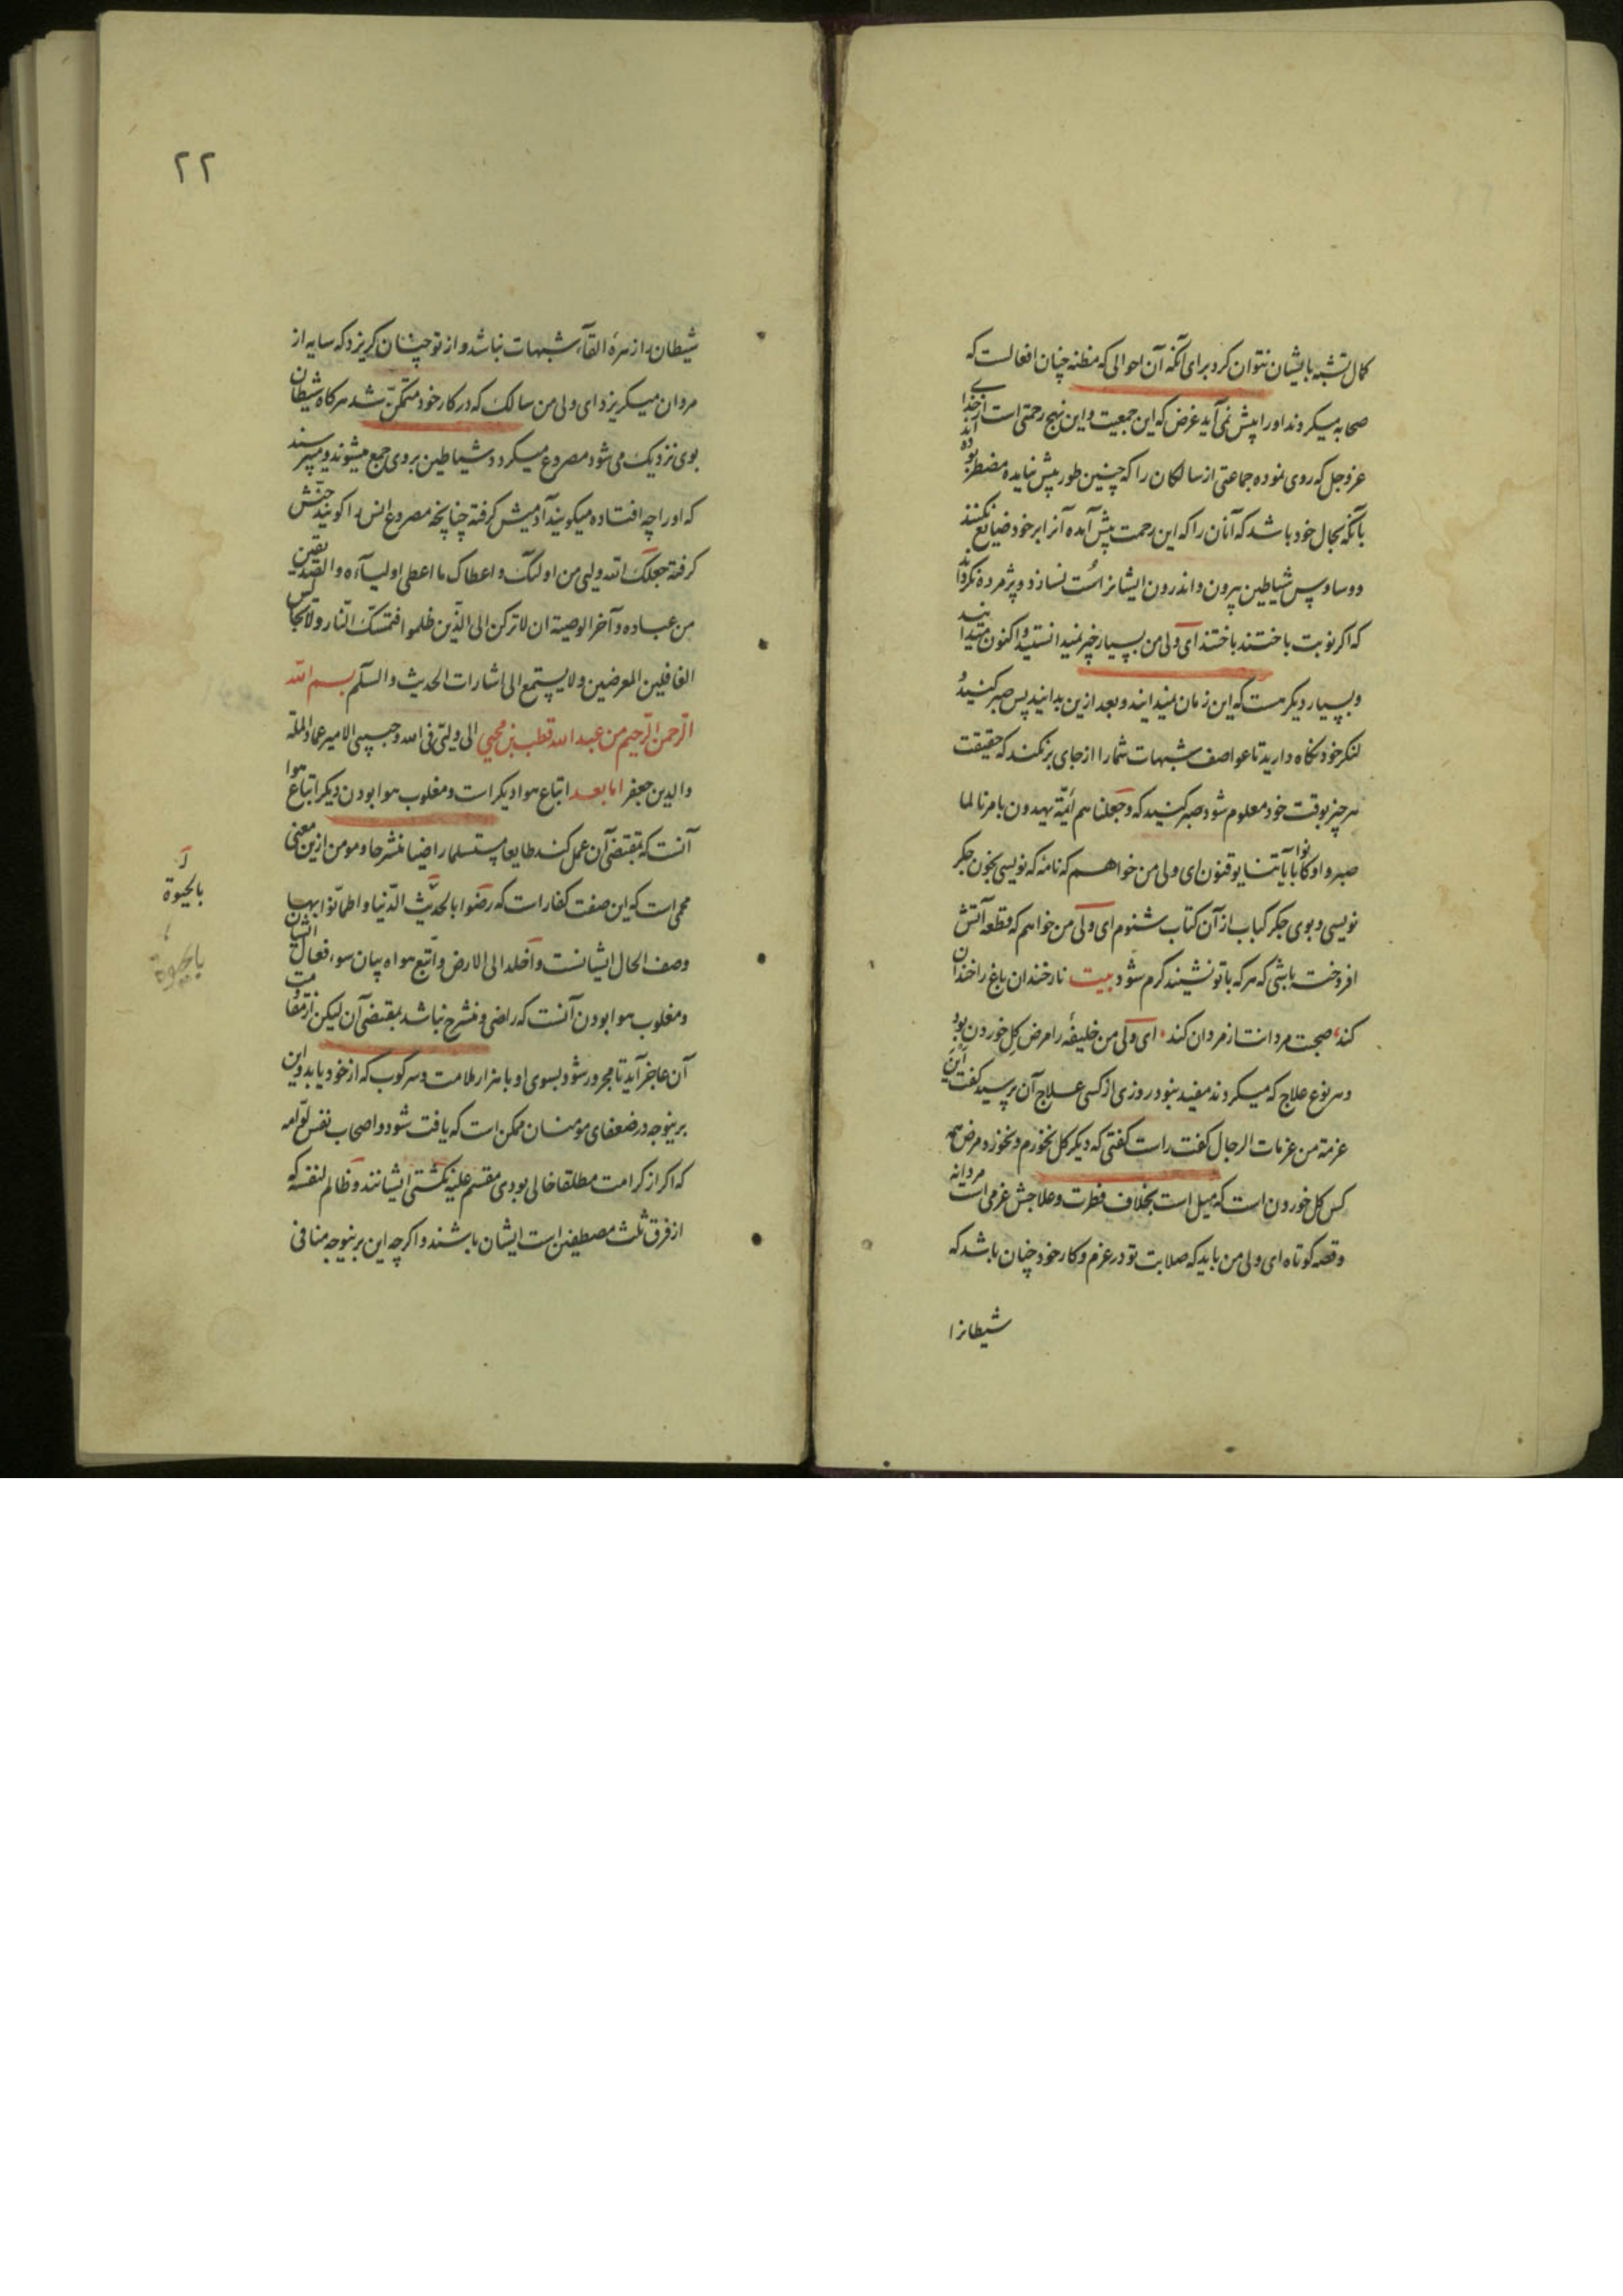 کمال تشبه بایشان نتوان کرد برای آنکه آن احوالی که مظنه چنان افعالست که
صحابه میکردند او را پیش نمی آید غرض که این جمعیت و این نهج رحمتی است از خدای
عز و جل که روی نموده جماعتی از سالکان را که چنین طور پیش نیاید مضطرب بوده اند
بآنکه بحال خود باشد که آنان را که این رحمت پیش آمده آنرا بر خود ضایع نکنند
و وساوس شیاطین بیرون و اندرون ایشانرا سست نسازد و پژمرده نکرداند
که اکر نوبت باختند باختند ای ولی من بسیار چیز نمیدانستید و اکنون میدانید
و بسیار دیکر هست که این زمان نمیدانید و بعد ازین بدانید پس صبر کنید و
لنکر خود نکاه دارید تا عواصف شبهات شما را از جای بر نکند که حقیقت
هر چیز بوقت خود معلوم شود صبر کنید که و جعلنا هم ائمّة یهدون بامرنا لما
صبروا و کانوا بآیاتنا یوقنون ای ولی من خواهم که نامه که نویسی بخون جکر
نویسی و بوی جکر کباب از آن کتاب شنوم ای ولی من خواهم که قطعه آتش
افروخته باشی که هر که با تو نشیند کرم شود بیت نار خندان باغ را خندان
کند صحبت مردانت از مردان کند ای ولی من خلیفهٔ را مرض کِل خوردن بود
و هر نوع علاج که میکردند مفید نبود روزی از کسی علاج آن پرسید کفت این
عزمة من عزمات الرجال کفت راست کفتی که دیکر کل نخورم و نخورد و مرض همه
کس کل خوردن است که میل است بخلاف فطرت و علاجش عزمی است مردانه
و قصه کوتاه ای ولی من باید که صلابت تو در عزم و کار خود چنان باشد که
شیطانرا
۲۲
شیطان را زهرهٔ القآء شبهات نباشد و از تو چنان کریزد که سایه از
مردان میکریزد ای ولی من سالک که در کار خود متمکّن شد هرکاه شیطان
بوی نزدیک می شود مصروع میکردد شیاطین بر وی جمع میشوند و میپرسند
که او را چه افتاده میکویند آدمیش کرفته چنانچه مصروع انس را کویند جنّش
کرفته جعلک الله ولیی من اولئک و اعطاک ما اعطی اولیآءه و الصدیقین
من عباده و آخر الوصیة ان لا ترکن الی الذّین ظلموا فتمسّک النّار و لا تجالس
الغافلین المعرضین و لا یستمع الی اشارات الحدیث و السلّم بسم الله
الرّحمن الرّحیم من عبد الله قطب بن محیی الی ولیّی فی الله و حبیبی الامیر عماد الملّة
و الدین جعفر اما بعد اتباع هوا دیکر است و مغلوب هوا بودن دیکر اتباع هوا
آنست که بمقتضی آن عمل کند طایعا مستسلما راضیا منشرحا و مومن ازین معنی
محمی است که این صفت کفار است که رضوا بالحیٰوة الدّنیا و اطمانّوا بها
وصف الحال ایشانست و اخلد الی الارض و اتّبع هواه بیان سوء فعال ایشان
و مغلوب هوا بودن آنست که راضی و منشرح نباشد بمقتضی آن لیکن از مقاومت
آن عاجز آید تا مجرور شود بسوی او با هزار ملامت و سرکوب که از خود یابد و این
برینوجه در ضعفای مؤمنان ممکن است که یافت شود و اصحاب نفس لوّامه
که اکر از کرامت مطلقا خالی بودی مقسم علیه نکشتی ایشانند و ظالم لنفسه که
از فرق ثلث مصطفین است ایشان باشند و اکرچه این برینوجه منافی
بالحیوة
بالحیوة